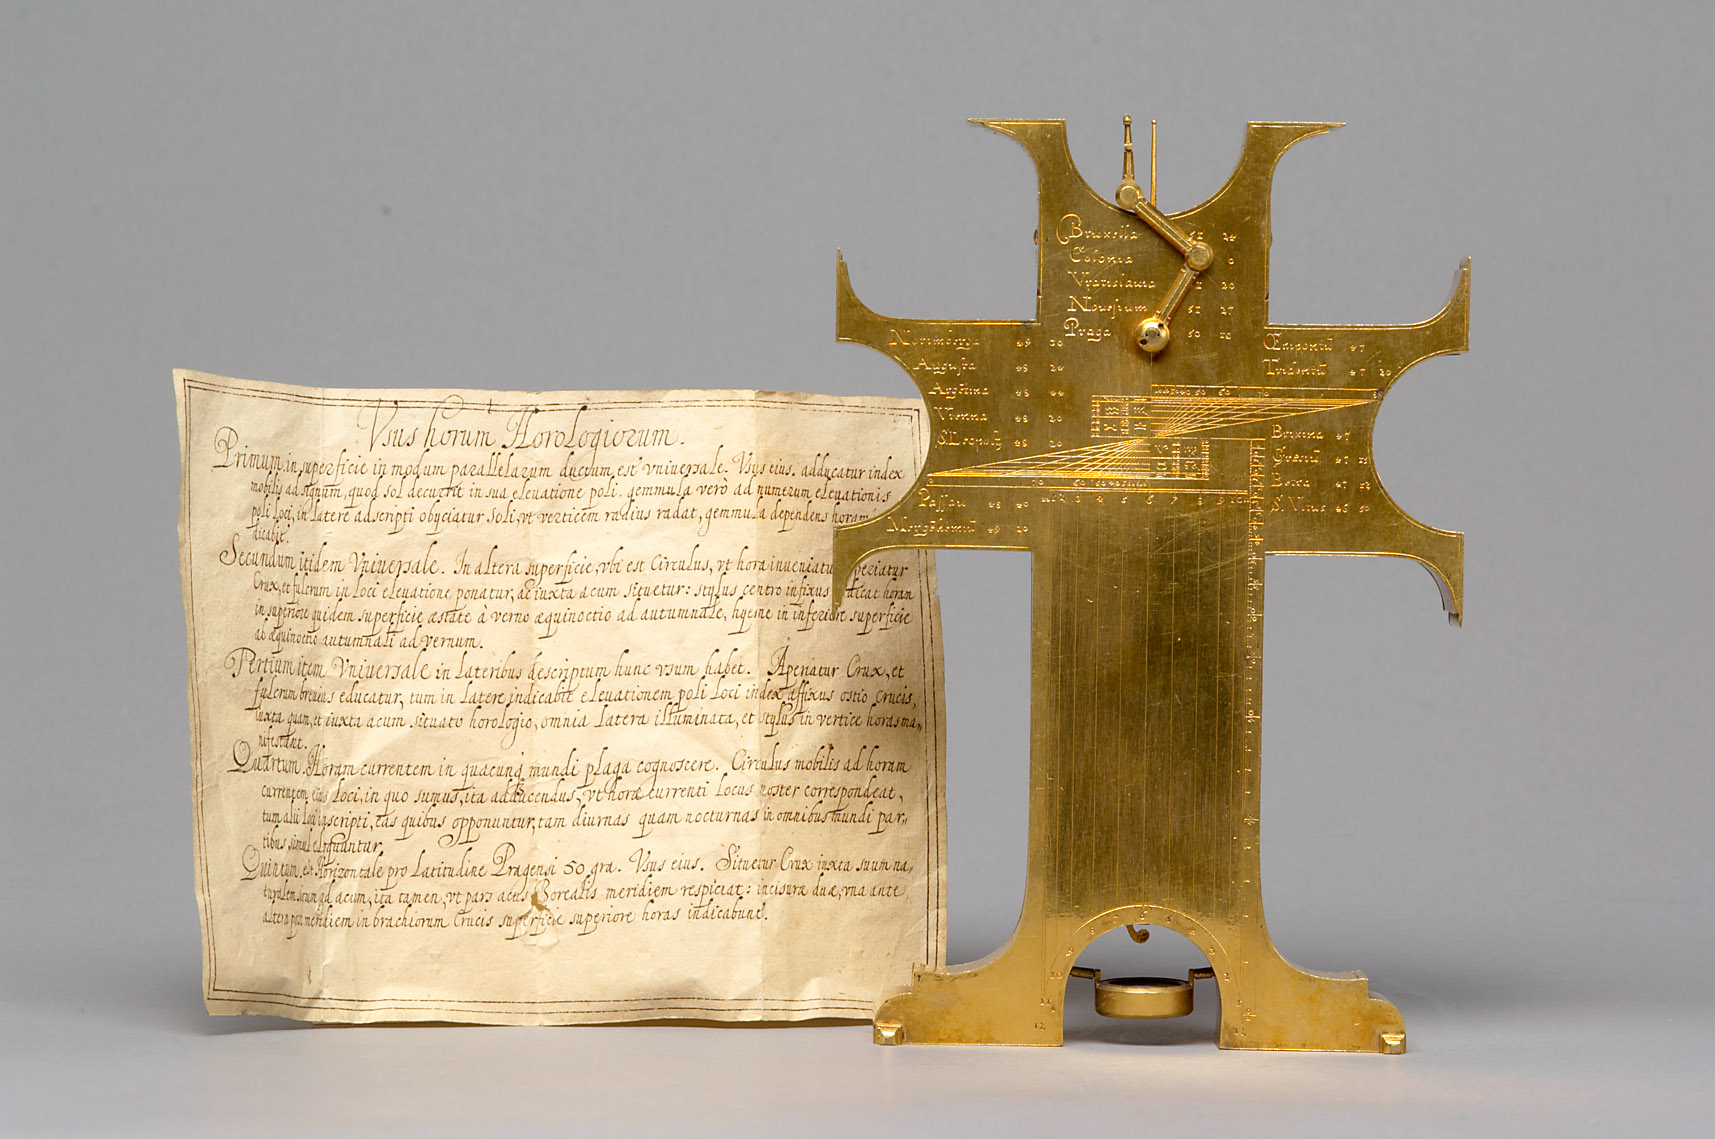 Vsus horum Horologiorum.
Primum in superficie in modum parallelarum ductum, est vniuersale. Vsus eius. adducatur index
mobilis ad signum, quod sol decurrit in sua eleuatione poli. gemmula verò ad numerum eleuationis
poli loci, in latere adscripti obijciatur Soli, vt verticem radius radat, gemmula dependens horam
dicabit.
Secundum itidem Vniuersale. In altera superficie, vbi est Circulus, vt hora inueniatur periatur
Crux, et fulcrum in loci eleuatione ponatur, ac iuxta acum situetur: stylus centro infixus dicat horam
in superiore quidem superficie æstate à verno æquinoctio ad autumnale, hyeme in inferiore superficie
ab æquinoctio autumnali ad vernum.
Tertium item Vniuersale in lateribus descriptum hunc vsum habet. Aperiatur Crux, et
fulcrum breuius educatur, tum in latere indicabit eleuationem poli loci index affixus ostio crucis,
iuxta quam, et iuxta acum situato horologio, omnia latera illuminata, et stylus in vertice horas ma,
nifestant.
Quartum Horam currentem in quacunq mundi plaga cognoscere. Circulus mobilis ad horam
currentem eius loci, in quo sumus, ita adducendus, vt horæ currenti locus noster correspondeat,
tum alii loci inscripti, eas quibus opponuntur, tam diurnas quam nocturnas in omnibus mundi par,
tibus simul eloquantur.
Quintum est Horizontale pro latitudine Pragensi 50 gra. Vsus eius. Situetur Crux iuxta suum na,
turalem situm ad acum, ita tamen, vt pars acus Borealis meridiem respiciat: incisuræ duæ, vna ante
altera post meridiem in brachiorum Crucis superficie superiore horas indicabunt.
Bruxella 51 24
Colonia 0
Vratislauia 51 20
Nouesium 51 27
Praga 50 10
Norimberga 49 20
Augusta 48 24
48 44
Vienna 48 20
S. Leopold 48 20
Passau 48 40
49 20
47
Tridentu 47 20
Brixina 47
47
47 52
S. Vitus 46 50
70 60 50
12 1 2 3 4 5 6 7 8 9 10